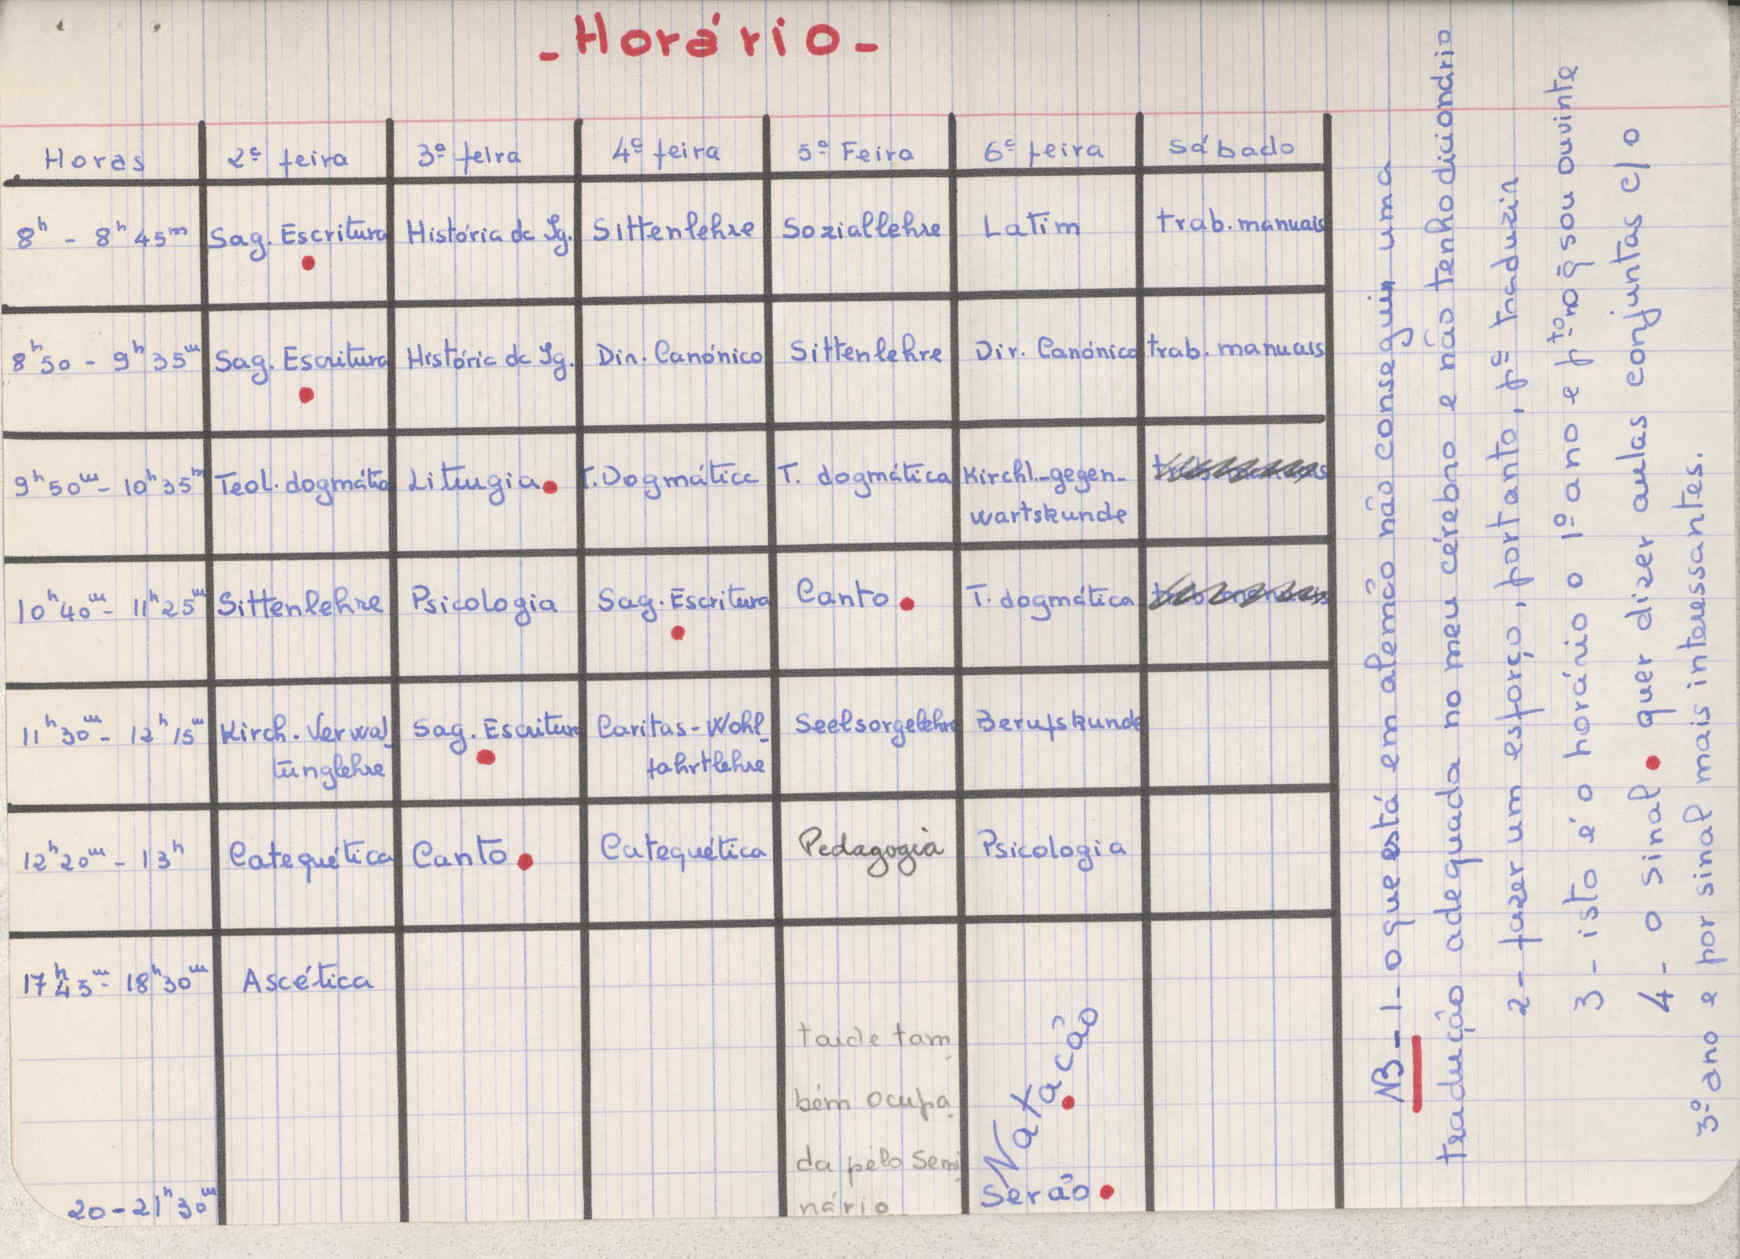 - Horário -
Horas 2ª feira 3ª feira 4ª feira 5ª Feira 6ª feira Sábado
8h - 8h45m Sag. Escritura História da Ig. Sittenlehre Soziallehre Latim trab. manuais
8h50 - 9h35m Sag. Escritura História da Ig. Dir. Canónico Sittenlehre Dir. Canónico trab. manuais
9h50m - 10h35m Teol. dogmática Liturgia T. Dogmática T. dogmática Kirchl.-gegen-
wartskunde
10h40m - 11h25m Sittenlehre Psicologia Sag. Escritura Canto T. dogmática
11h30m - 12h15m Kirch. Verwal- Sag. Escritura Caritas-Wohl- Seelsorgelehre Berufskunde
tunglehre fahrtlehre
12h20m - 13h Catequética Canto Catequética Pedagogia Psicologia
17h45m - 18h30m Ascética
tarde tam
bém ocupa
da pelo Semi
nário
Natação
20 - 21h30m Serão
NB - 1 - o que está em alemão não consegui uma
tradução adequada no meu cérebro e não tenho dicionário
2 - fazer um esforço, portanto, pª traduzir
3 - isto é o horário o 1º ano e pto no q̃ sou ouvinte
4 - o sinal • quer dizer aulas conjuntas c/ o
3º ano e por sinal mais interessantes.